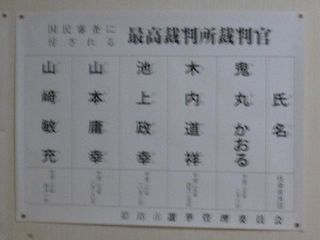 国民審査に
付される
最高裁判所裁判官
氏名
鬼丸かおる
木内道祥
池上政幸
山本庸幸
山﨑敏充
選挙管理委員会